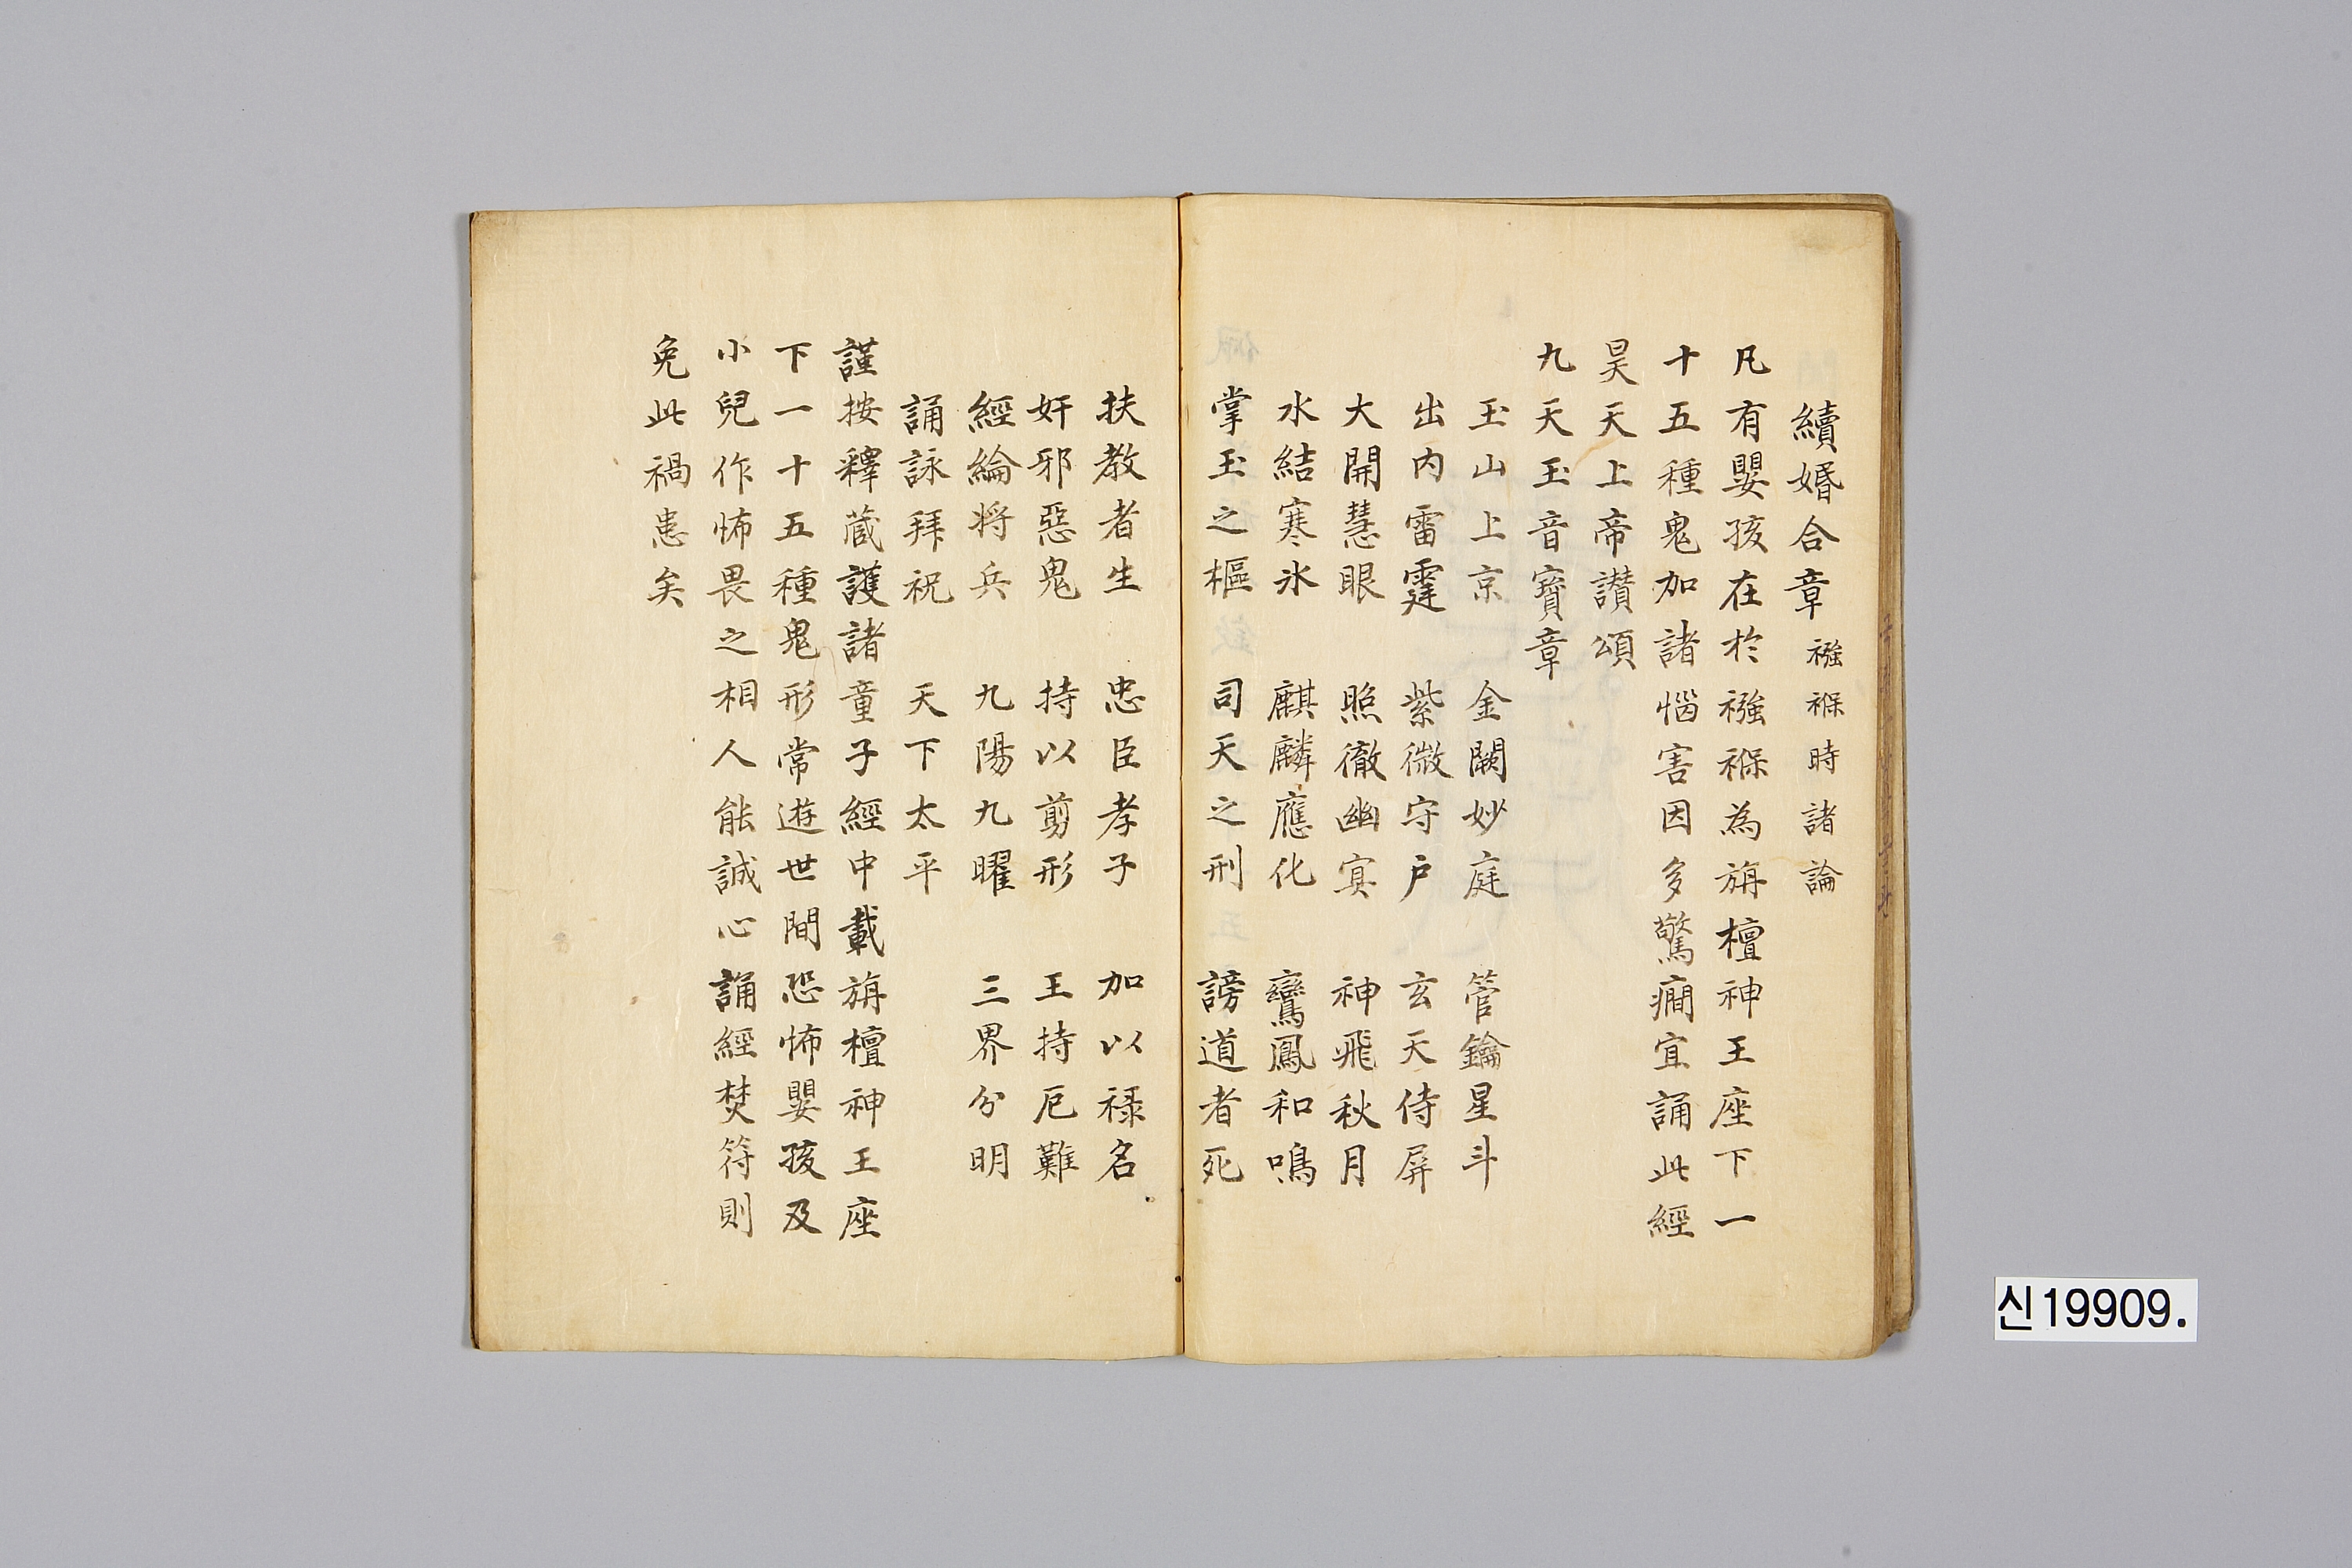 續婚合章 襁褓時諸論
凡有嬰孩在於襁褓為旃檀神王座下一
十五種鬼加諸惱害因多驚癎宜誦此經
昊天上帝讃頌
九天玉音寶章
玉山上京 金闕妙庭 管鑰星斗
出内雷霆 紫微守户 玄天侍屏
大開慧眼 照徹幽㝠 神飛秋月
水結寒氷 麒麟應化 鸞鳳和鳴
掌玉之樞 司天之刑 謗道者死
扶教者生 忠臣孝子 加以禄名
奸邪惡鬼 持以剪形 王持厄難
經綸将兵 九陽九曜 三界分明
誦詠拜祝 天下太平
謹按釋蔵護諸童子經中載旃檀神王座
下一十五種鬼形常遊世間恐怖嬰孩及
小兒作怖畏之相人能誠心誦經焚符則
免此禍患矣
신19909.